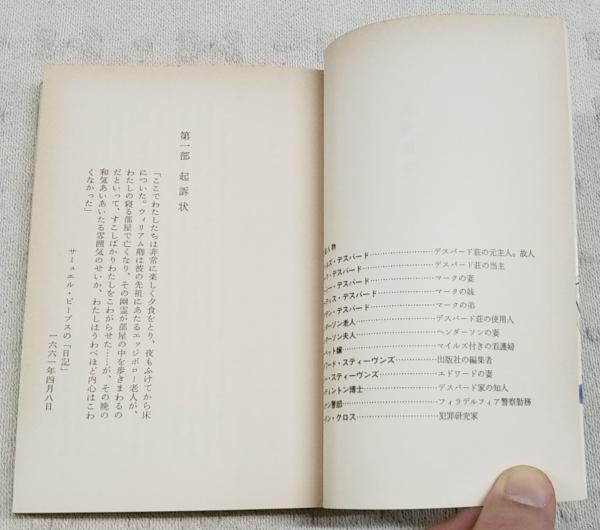 人物
ルズ・デスパード…………デスパード荘の元主人。故人
ーク・デスパード…………デスパード荘の当主
ー・デスパード…………マークの妻
ディス・デスパード…………マークの妹
デン・デスパード…………マークの弟
ダーソン老人…………デスパード荘の使用人
ダーソン夫人…………ヘンダーソンの妻
ベット嬢…………マイルズ付きの看護婦
ワード・スティーヴンズ…………出版社の編集者
ー・スティーヴンズ…………エドワードの妻
ティントン博士…………デスパード家の知人
ナン警部…………フィラデルフィア警察勤務
イン・クロス…………犯罪研究家
第一部 起訴状
「ここでわたしたちは非常に楽しく夕食をとり、夜もふけてから床
についた。ウィリアム卿は彼の先祖にあたるエッジボロー老人が、
わたしの寝る部屋で亡くなり、その幽霊が部屋の中を歩きまわるの
だといって、すこしばかりわたしをこわがらせた……が、その晩の
和気あいあいたる雰囲気のせいか、わたしはうわべほど内心はこわ
くなかった」
サミュエル・ピープスの「日記」
一六六一年四月八日